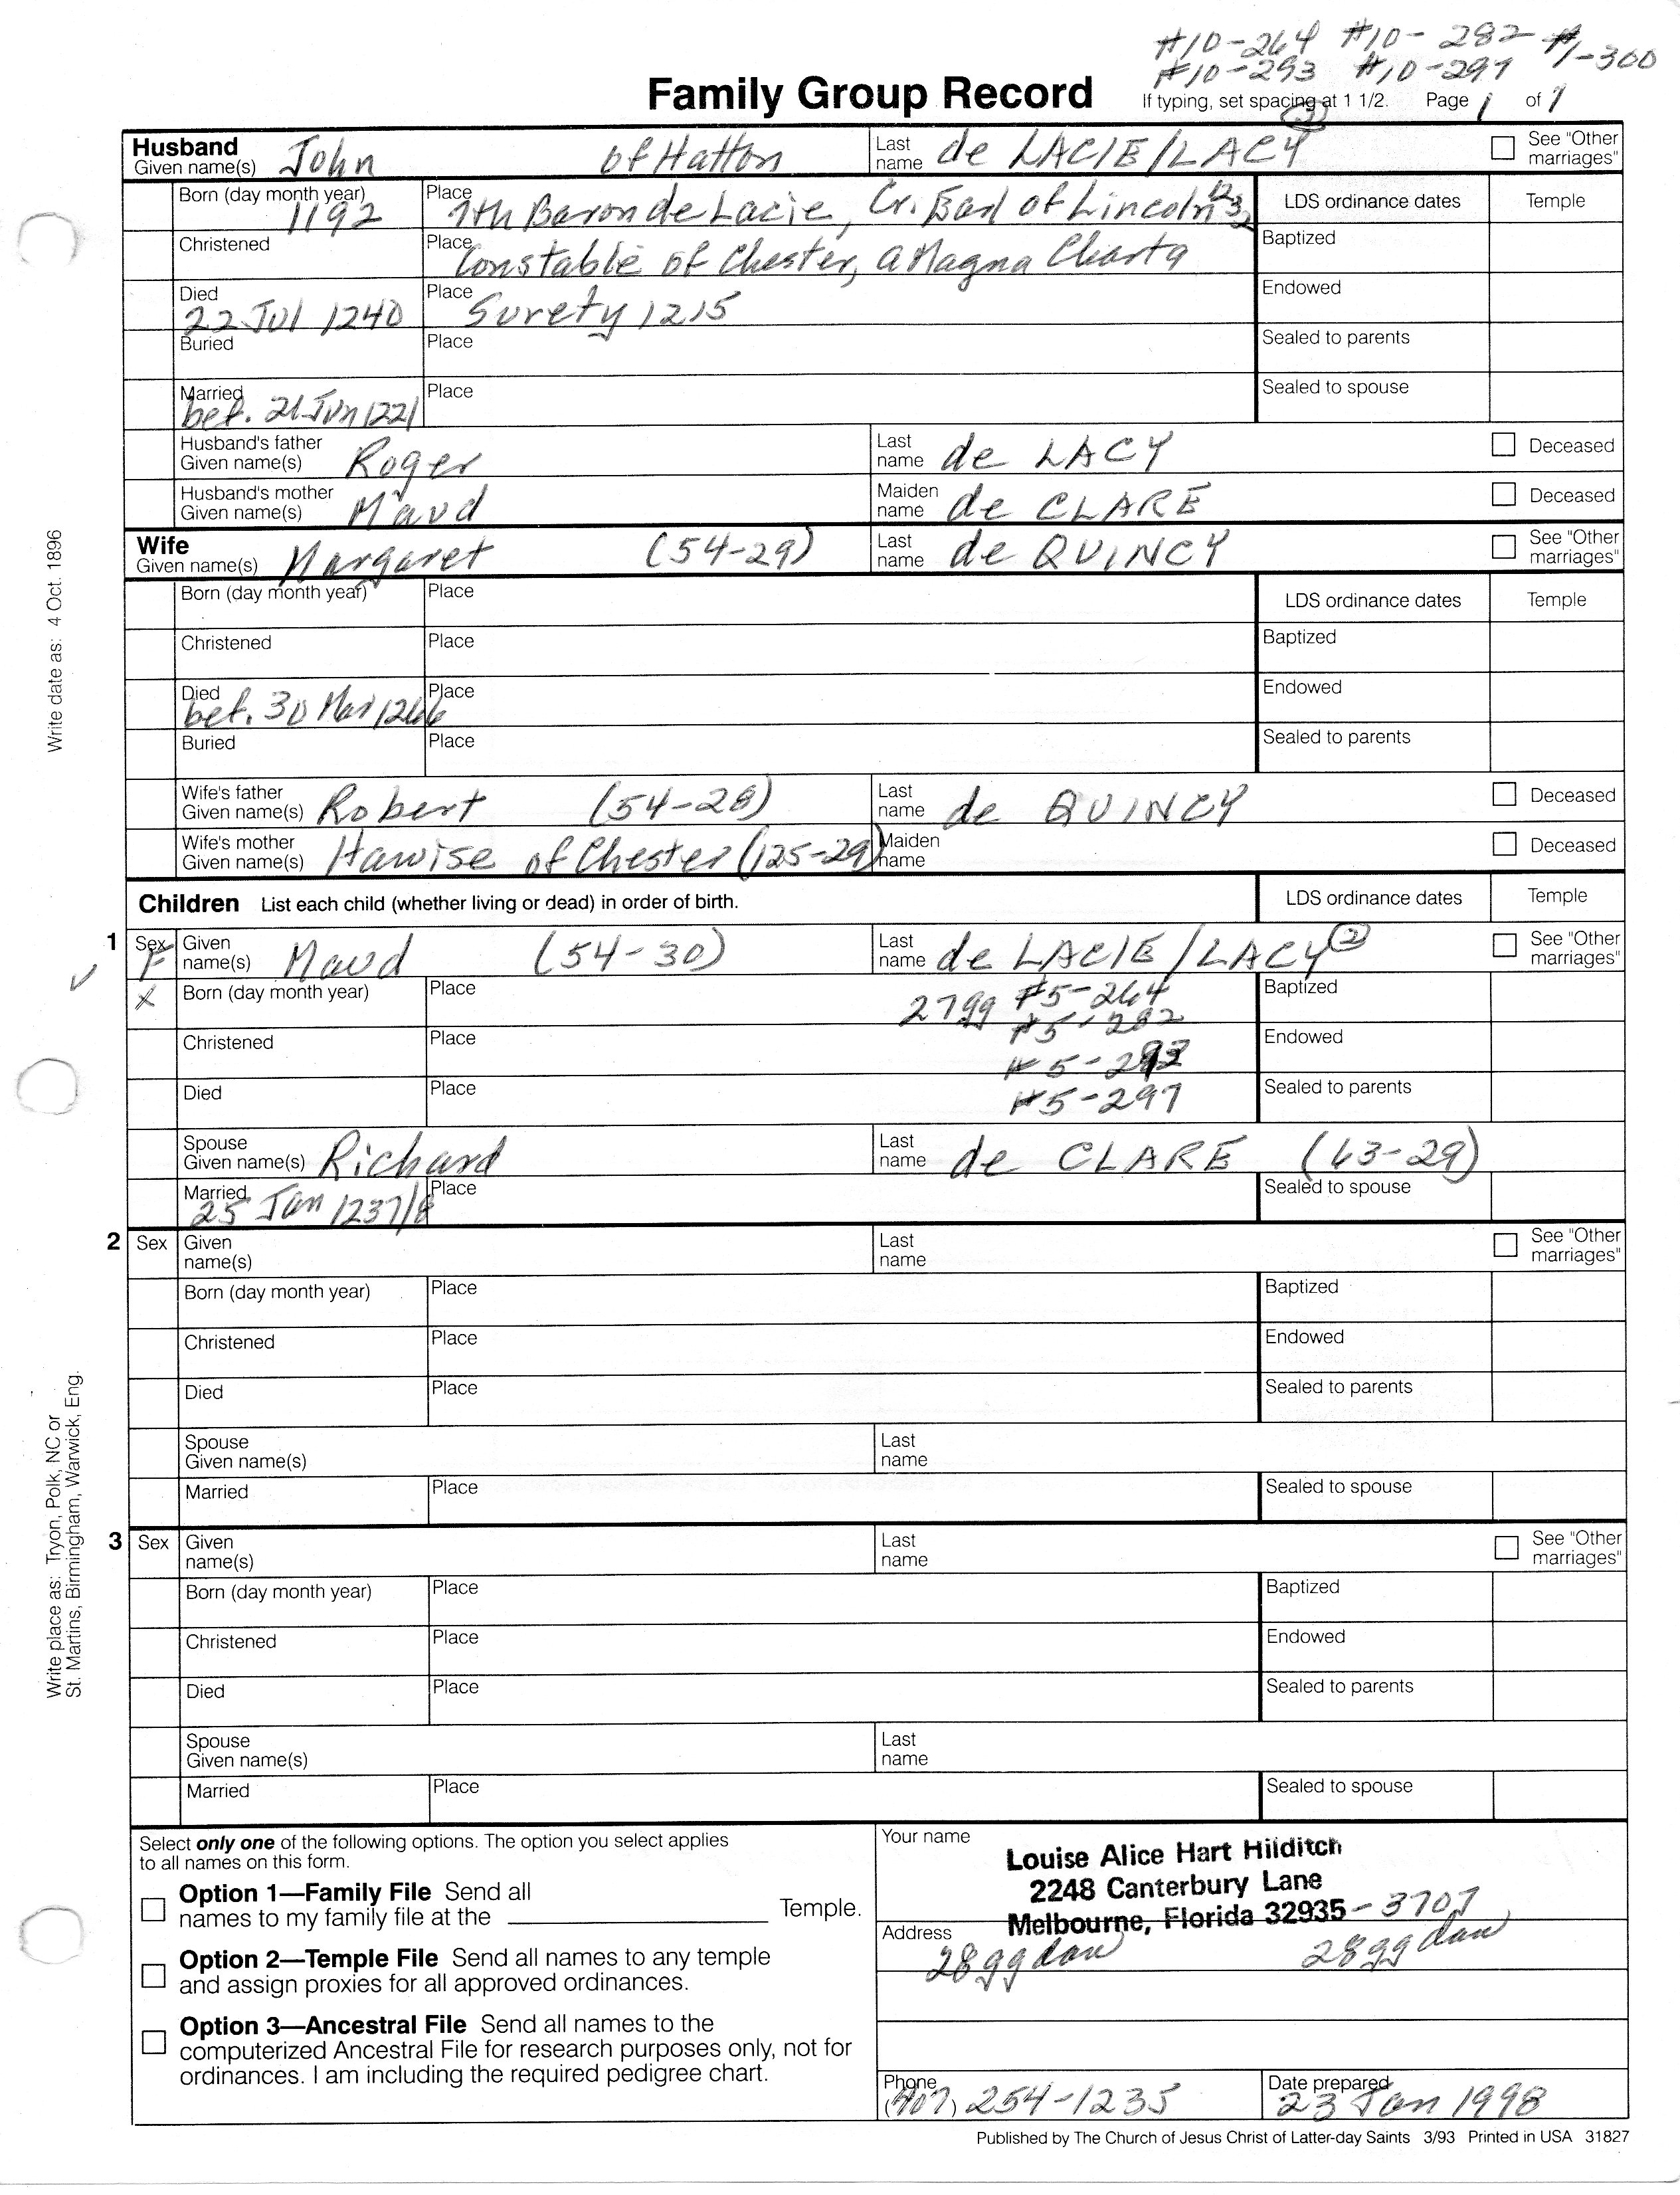 #10-264 #10-282 #1-300
#10-293 #10-297
Family Group Record
If typing, set spacing at 1 1/2. Page 1 of 1
Husband
Given name(s) John of Hatton Last name de LACIE/LACY (3)
See "Other marriages"
Born (day month year) 1192 Place 7th Baron de Lacie, Cr. Earl of Lincoln 1232
LDS ordinance dates Temple
Christened Place Constable of Chester, a Magna Charta Baptized
Died 22 Jul 1240 Place Surety 1215 Endowed
Buried Place Sealed to parents
Married bef. 21 Jun 1221 Place Sealed to spouse
Husband's father
Given name(s) Roger Last name de LACY Deceased
Husband's mother
Given name(s) Maud Maiden name de CLARE Deceased
Wife
Given name(s) Margaret (54-29) Last name de QUINCY See "Other marriages"
Born (day month year) Place LDS ordinance dates Temple
Christened Place Baptized
Died bef. 30 Mar 1266 Place Endowed
Buried Place Sealed to parents
Wife's father
Given name(s) Robert (54-28) Last name de QUINCY Deceased
Wife's mother
Given name(s) Hawise of Chester (125-29) Maiden name Deceased
Children List each child (whether living or dead) in order of birth. LDS ordinance dates Temple
1 Sex F Given name(s) Maud (54-30) Last name de LACIE/LACY (2) See "Other marriages"
x Born (day month year) Place 27gg #5-264 Baptized
#5-282
Christened Place #5-293 Endowed
Died Place #5-297 Sealed to parents
Spouse
Given name(s) Richard Last name de CLARE (63-29)
Married 25 Jan 1237/8 Place Sealed to spouse
2 Sex Given name(s) Last name See "Other marriages"
Born (day month year) Place Baptized
Christened Place Endowed
Died Place Sealed to parents
Spouse
Given name(s) Last name
Married Place Sealed to spouse
3 Sex Given name(s) Last name See "Other marriages"
Born (day month year) Place Baptized
Christened Place Endowed
Died Place Sealed to parents
Spouse
Given name(s) Last name
Married Place Sealed to spouse
Select only one of the following options. The option you select applies
to all names on this form.
Option 1—Family File Send all
names to my family file at the Temple.
Option 2—Temple File Send all names to any temple
and assign proxies for all approved ordinances.
Option 3—Ancestral File Send all names to the
computerized Ancestral File for research purposes only, not for
ordinances. I am including the required pedigree chart.
Your name Louise Alice Hart Hilditch
2248 Canterbury Lane
Melbourne, Florida 32935-3707
Address 28gg dau 28gg dau
Phone (407) 254-1235
Date prepared 23 Jan 1998
Published by The Church of Jesus Christ of Latter-day Saints 3/93 Printed in USA 31827
Write date as: 4 Oct. 1896
Write place as: Tryon, Polk, NC or
St. Martins, Birmingham, Warwick, Eng.